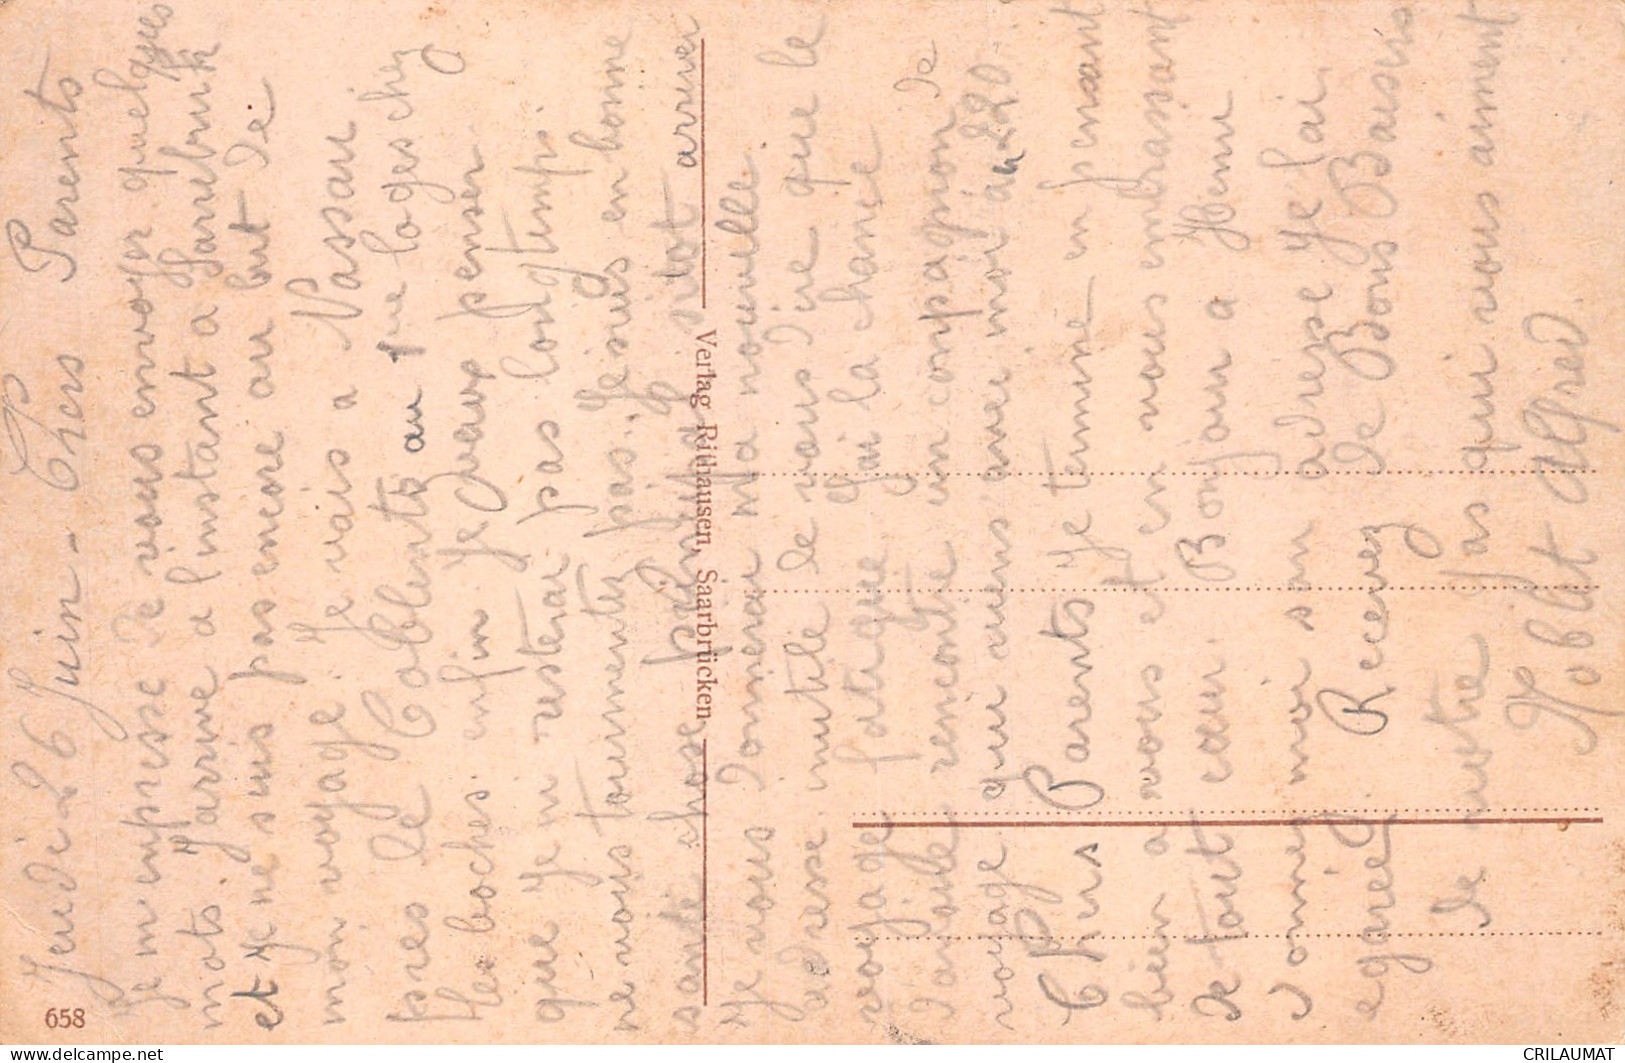 Jeudi 26 Juin - Chers Parents
Je m'enpresse de vous envoyer quelques
mots J'arrive a l'instant a Sarrebruck
et je ne suis pas encore au bout de
mon voyage. Je vais a Nassau
pres de Coblents au nue loges chez
les boches. enfin je peux penser
que je n resterai pas longtemps.
ne vous tourmentez pas. Je suis en bonne
santé chose principal sitot arriver
Je vous donnerai ma nouvelle
adresse inutile de vous dire que le
voyage fatigue j'ai la chance
d'avoir rencontré un compagnon de
voyage qui viens avec moi au 220.
Chers Parents Je termine en pensant
bien a vous et en vous embrassant
de tout cœur. Bonjour a
donner moi son adresse je l'ai
egarée Recevez de Bons Baisers
de votre fas qui vous aiment
Noblet Alfred.
Verlag Rithausen, Saarbrücken
658
CRILAUMAT